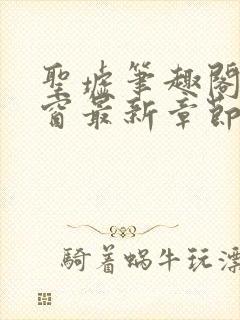 聖墟筆趣閣
窗最新章節
騎着蝸牛玩漂